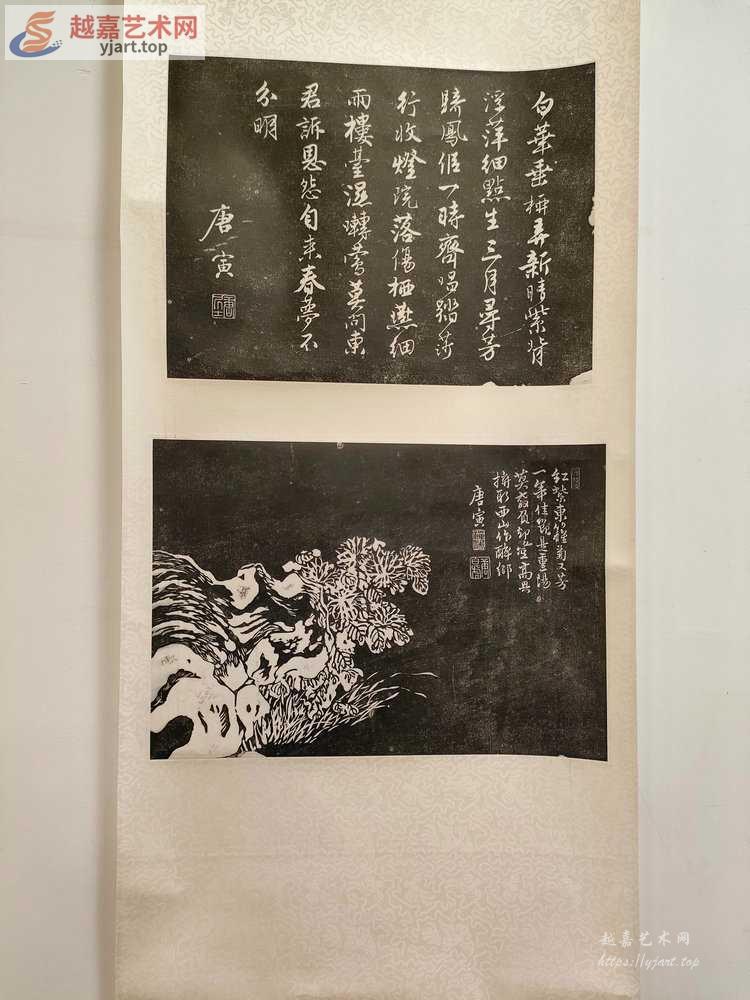 越嘉艺术网
yjart.top
白葉垂弄新晴紫背
浮萍細點生三月尋芳
驕鳳侶一時齊唱踏莎
行收燈院落傷栖燕細
雨樓臺濕囀鶯莫向東
君訴恩怨自來春夢不
分明
唐寅
紅紫東籬菊又芳
一年佳節是重陽
莫教負却登高興
拚取西山作醉鄉
唐寅
越嘉艺术网
https://yjart.top